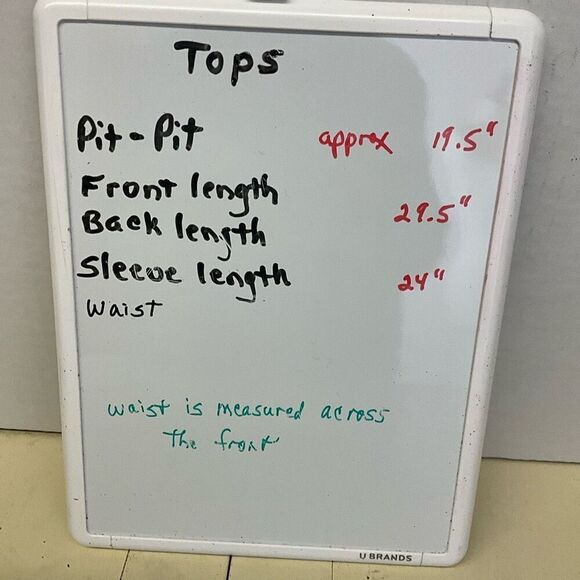 Tops
Pit-Pit approx 19.5"
Front length
29.5"
Back length
Sleeve length 24"
Waist
waist is measured across
the front
U BRANDS